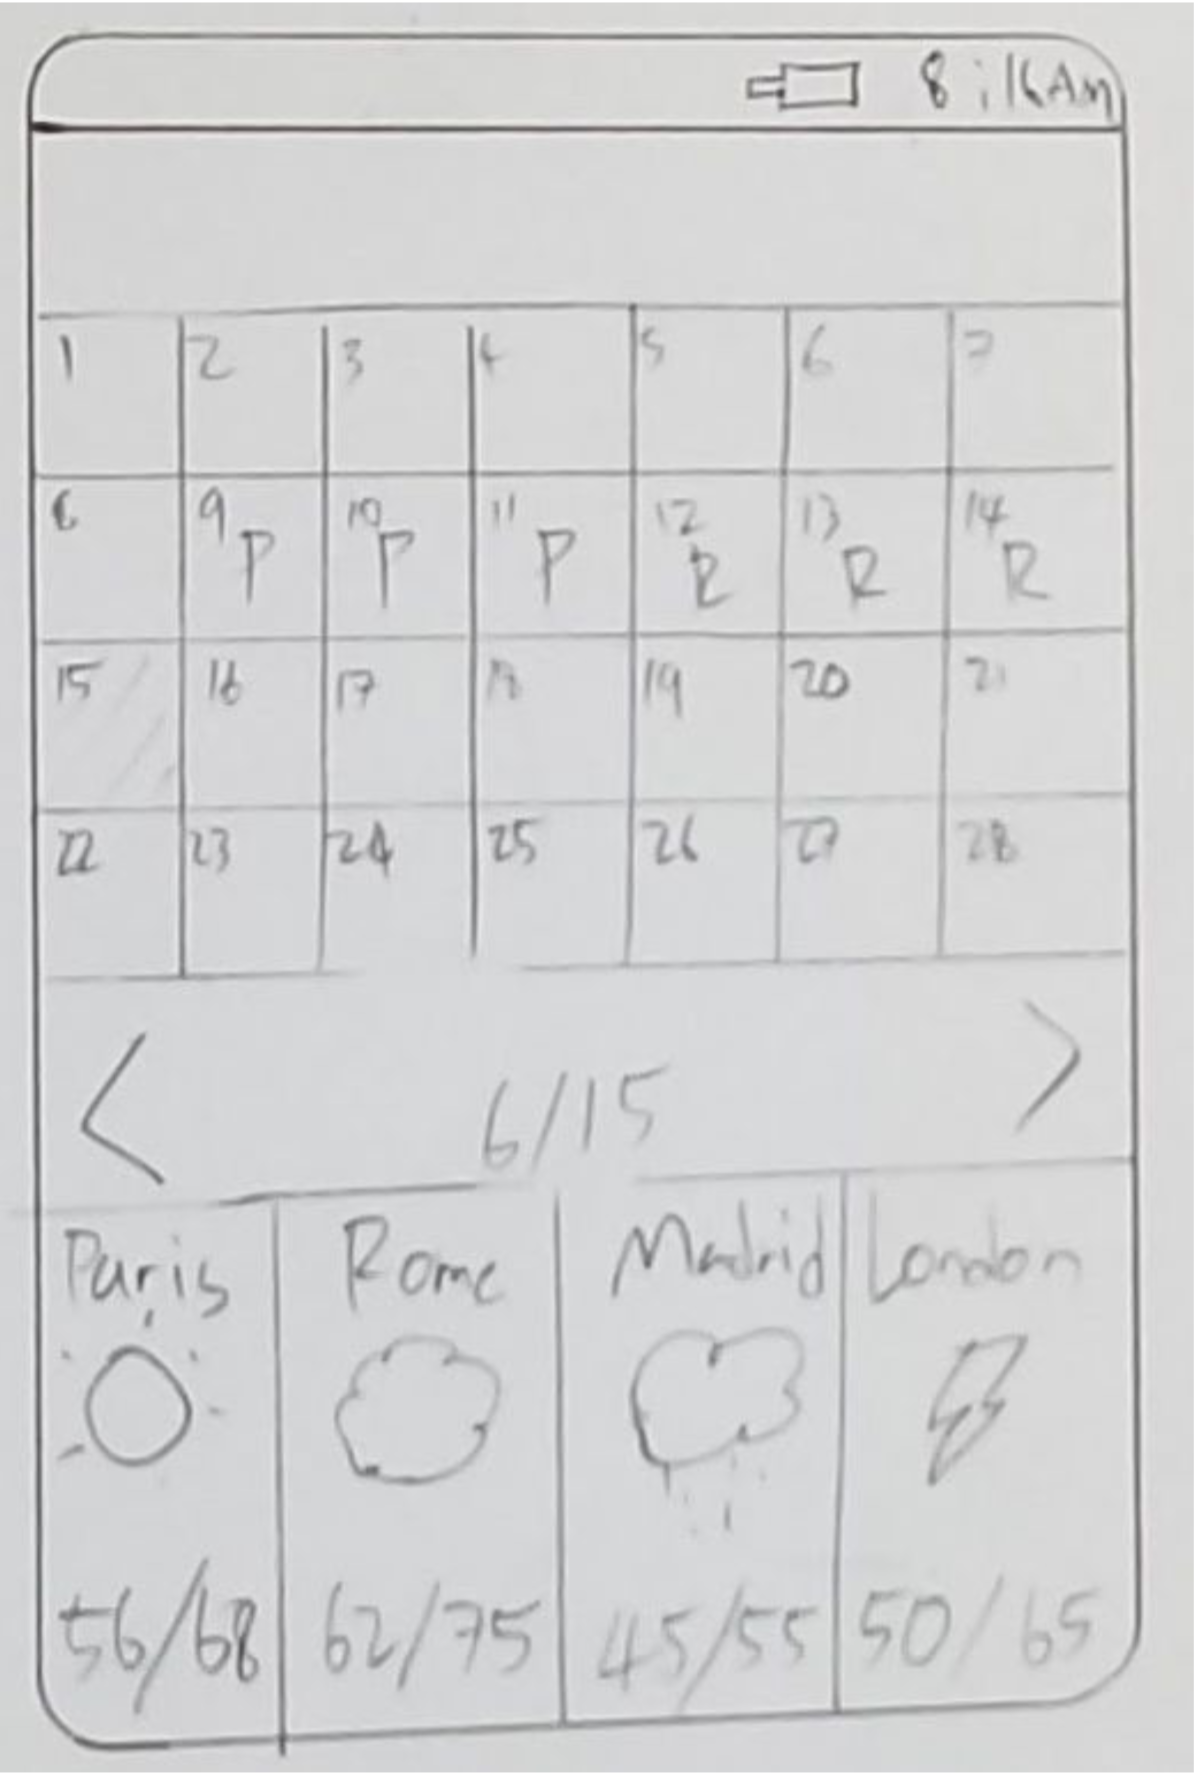 8:16AM
1 2 3 4 5 6 7
8 9 10 11 12 13 14
P P P R R R
15 16 17 18 19 20 21
22 23 24 25 26 27 28
< 6/15 >
Paris Rome Madrid London
56/68 62/75 45/55 50/65